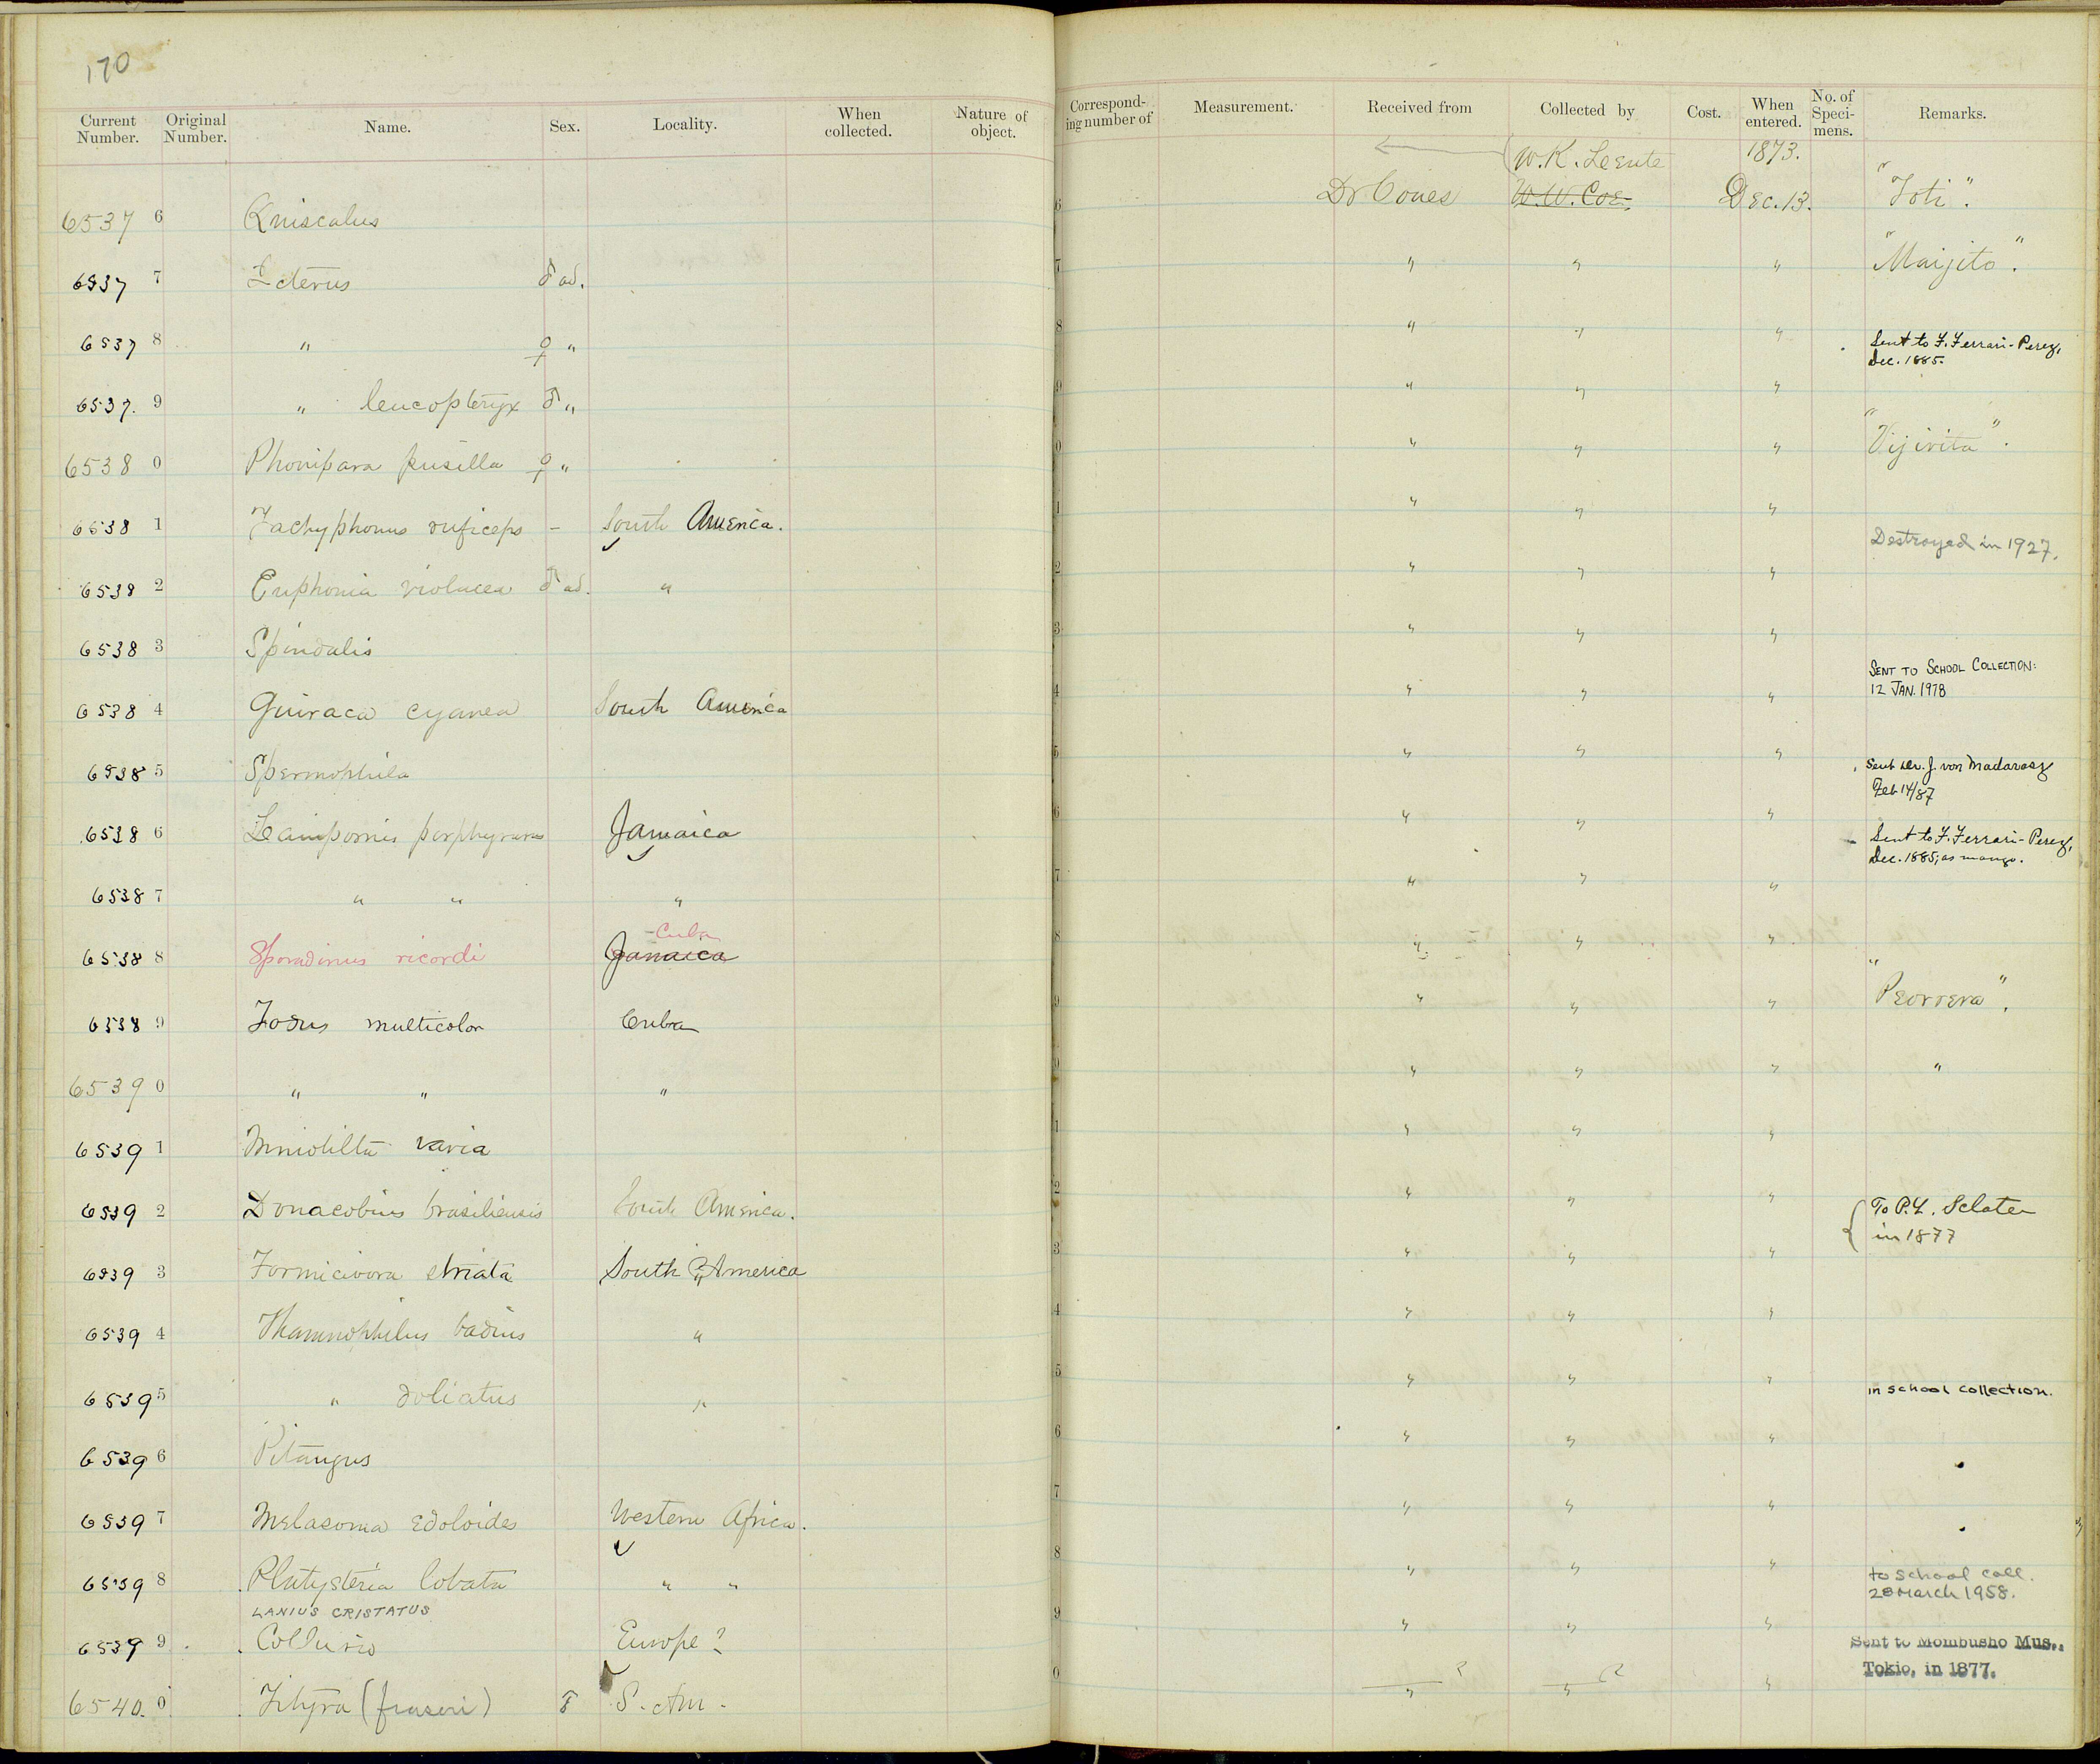 170
Current Number. Original Number. Name. Sex. Locality. When collected. Nature of object. Corresponding number of Measurement. Received from Collected by Cost. When entered. No. of Specimens. Remarks.
W.K. 1873.
6537 6 Quiscalus 6 Dr Coues W.W. Coe. Dec. 13. "Toti".
6537 7 Icterus ♂ ad. 7 " " " "Maijito".
6537 8 " ♀ " 8 " " " Sent to F. Ferrari-Perez,
Dec. 1885.
6537. 9 " leucopteryx ♂ " 9 " " "
6538 0 Phonipara pusilla ♀ " 0 " " " "Vijirita".
6538 1 Tachyphonus ruficeps - South America. 1 " " " Destroyed in 1927.
6538 2 Euphonia violacea ♂ ad. " 2 " " "
6538 3 Spindalis 3 " " "
6538 4 Guiraca cyanea South America 4 " " " SENT TO SCHOOL COLLECTION:
12 JAN. 1978
6538 5 Spermophila 5 " " " Sent Dr. J. von Madarasz
Feb 14/87
6538 6 Lampornis porphyrurus Jamaica 6 " " " Sent to F. Ferrari-Perez,
Dec. 1885; as mango.
6538 7 " " " 7 " " "
Cuba
6538 8 Sporadinus ricordi Jamaica 8 " " "
6538 9 Todus multicolor Cuba 9 " " " "Peorrera".
6539 0 " " " 0 " " " "
6539 1 Mniotilta varia 1 " " "
6539 2 Donacobius brasiliensis South America. 2 " " " To P.L. Sclater
in 1877
6539 3 Formicivora striata South America 3 " " "
6539 4 Thamnophilus badius " 4 " " "
6539 5 " doliatus " 5 " " " in school collection.
6539 6 Pitangus 6 " " "
6539 7 Melasoma edoloides Western Africa. 7 " " "
6539 8 Platysteira lobata " " 8 " " " to School Coll.
28 March 1958.
LANIUS CRISTATUS
6539 9 Collurio Europe? 9 " " " Sent to Mombusho Mus.,
Tokio, in 1877.
6540. 0 Tityra (fraseri) S. Am. 0 " ? " ? "